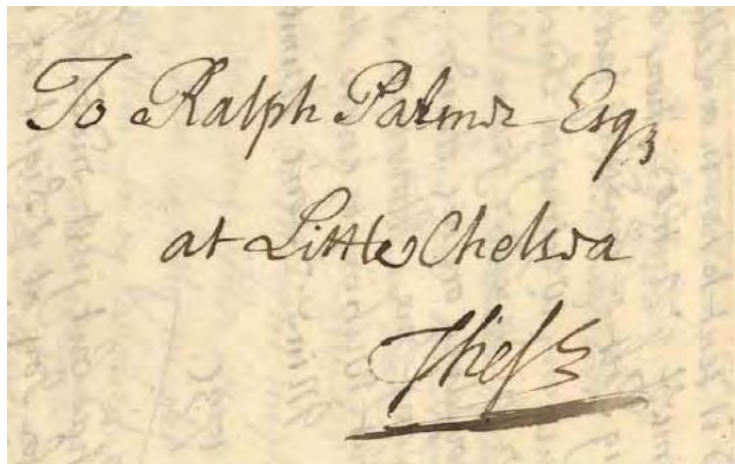 To Ralph Palmer Esqꝫ
at Little Chelsea
Theſꝫ